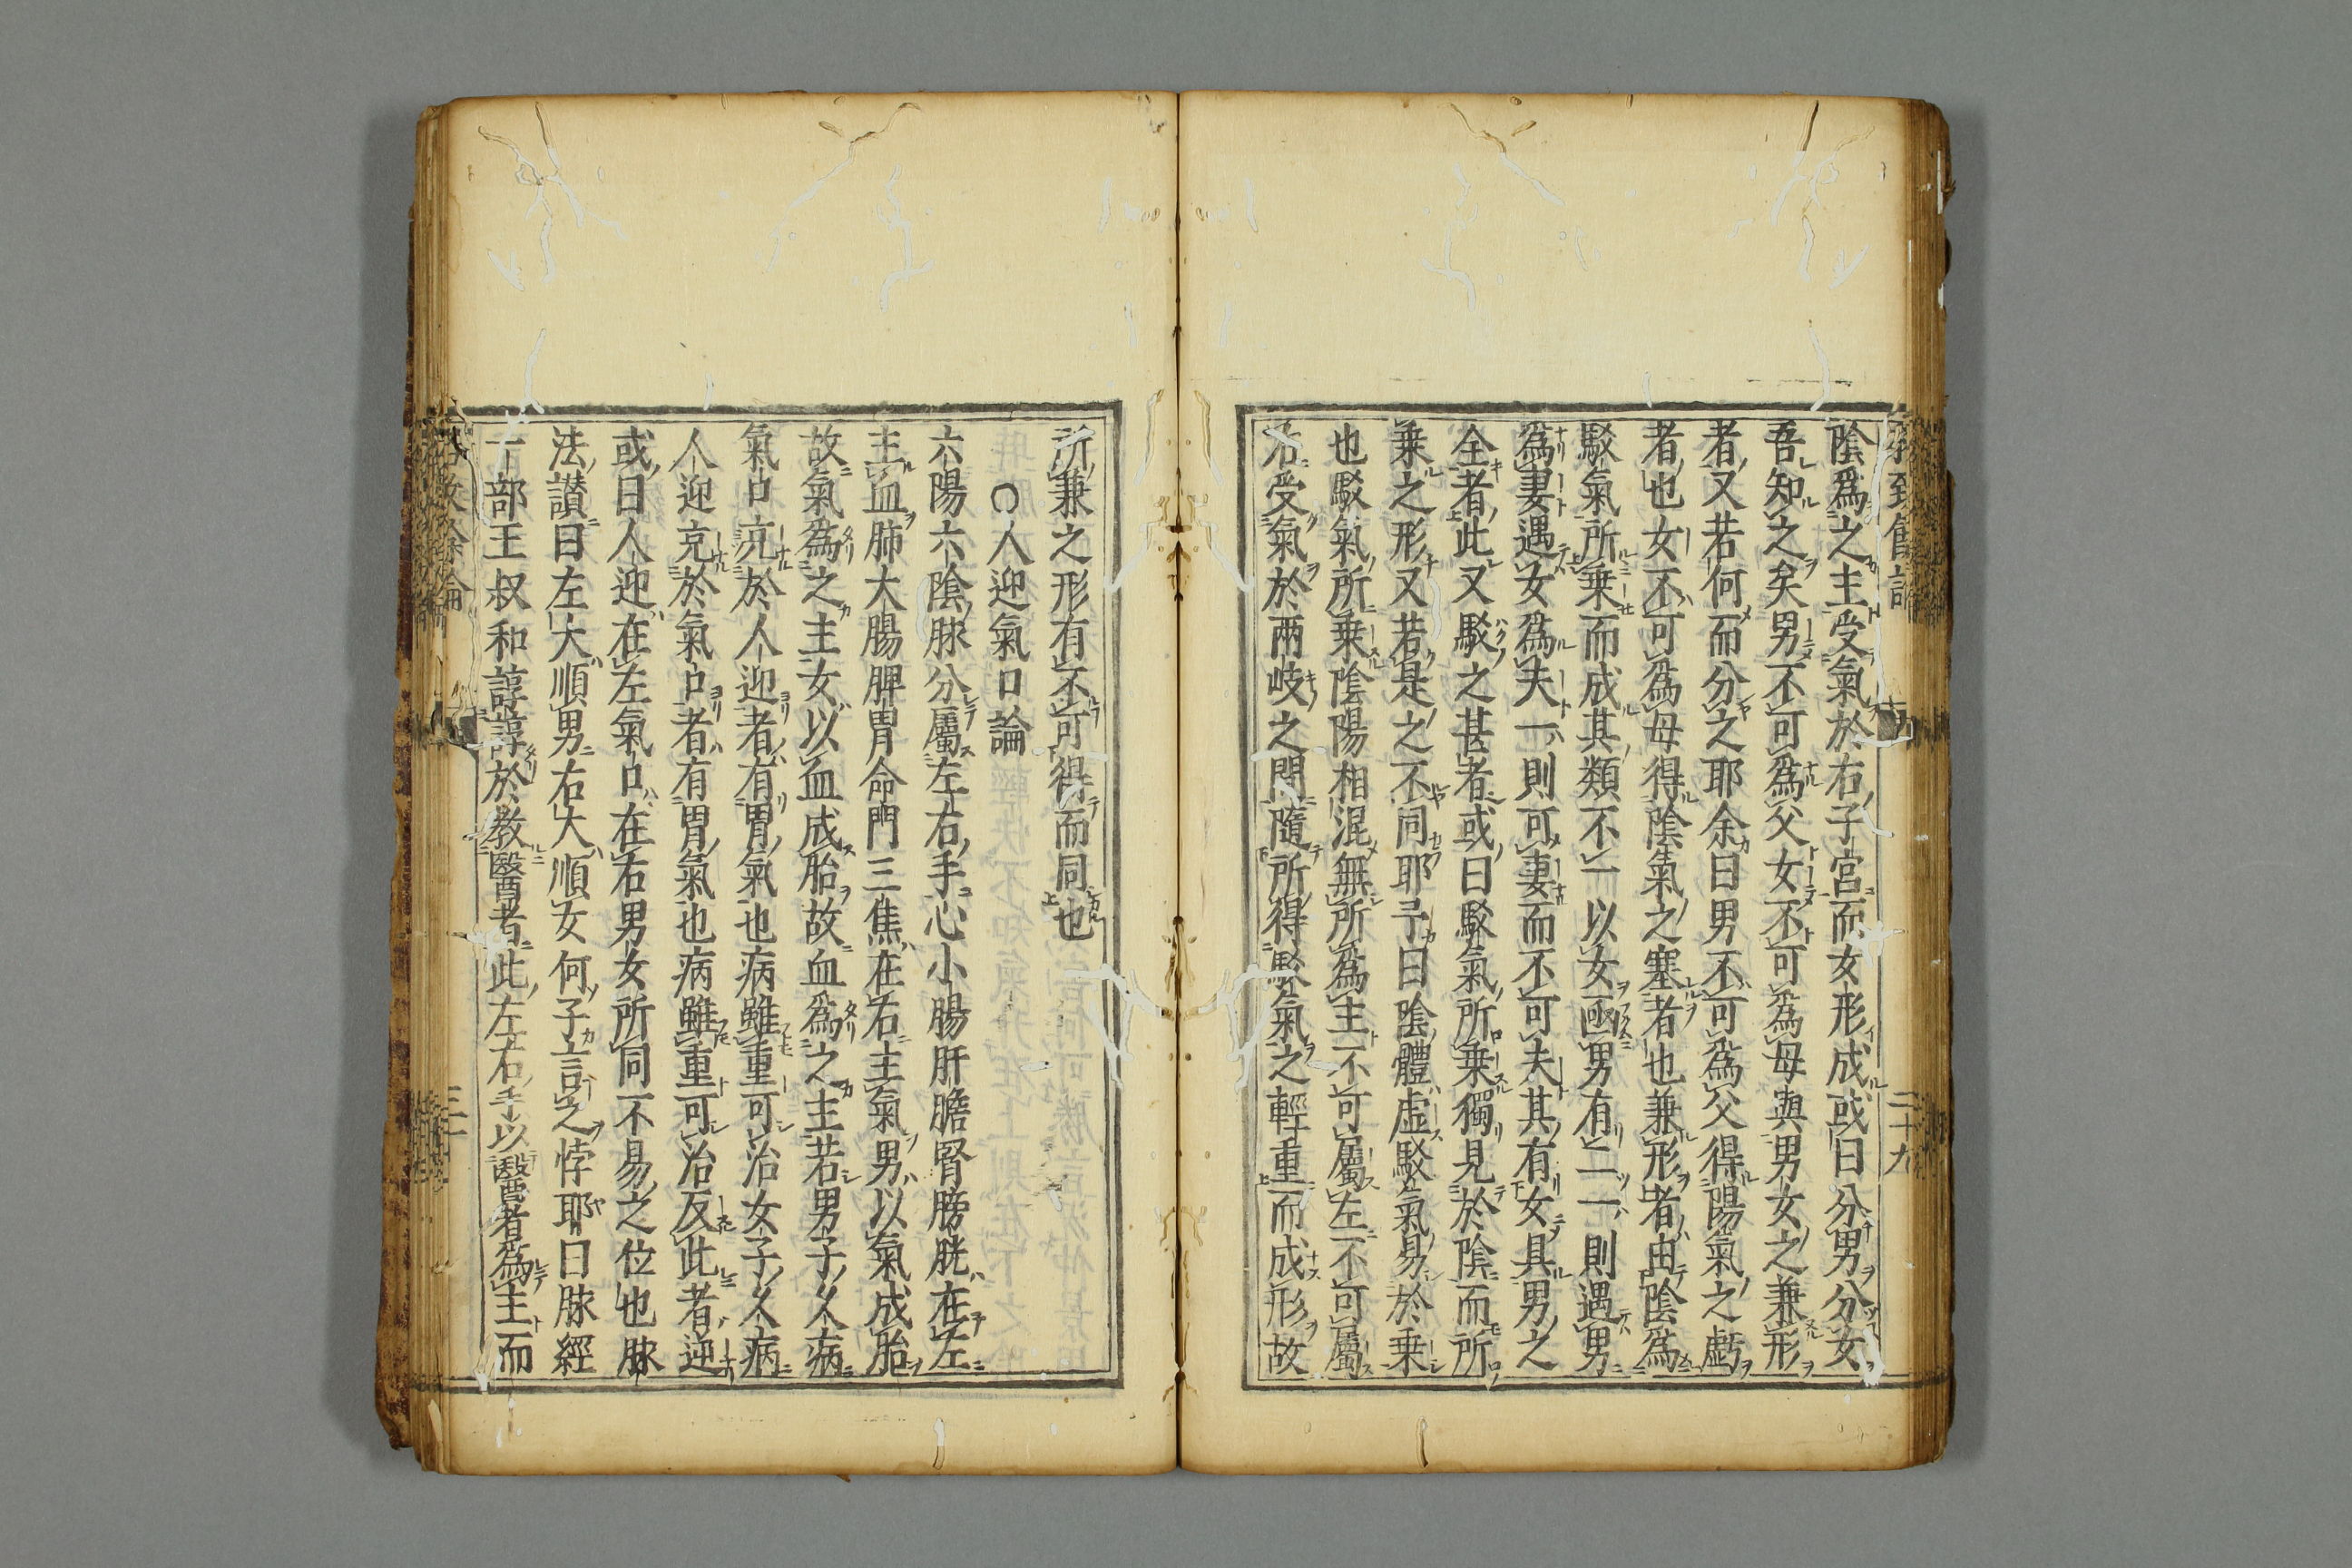 陰爲之主受氣於右子宮而女形成或曰分男分女
吾知之矣男不可爲父女不可爲母與男女之兼形
者又若何而分之耶余曰男不可爲父得陽氣之虧
者也女不可爲母得陰氣之塞者也兼形者由陰爲
駁氣所乗而成其類不一以女凾男有二一則遇男
爲妻遇女爲夫一則可妻而不可夫其有女具男之
全者此又駁之甚者或曰駁氣所乗獨見於陰而所
乗之形又若是之不同耶予曰陰體虛駁氣易於乗
也駁氣所乗陰陽相混無所爲主不可屬左不可屬
右受氣於兩岐之間隨所得駁氣之輕重而成形故
二十九
所兼之形有不可得而同也
〇人迎氣口論
六陽六陰脉分屬左右手心小腸肝膽腎膀胱在左
主血肺大腸脾胃命門三焦在右主氣男以氣成胎
故氣爲之主女以血成胎故血爲之主若男子久病
氣口充於人迎者有胃氣也病雖重可治女子久病
人迎充於氣口者有胃氣也病雖重可治反此者逆
或曰人迎在左氣口在右男女所同不易之位也脉
法讃曰左大順男右大順女何子言之悖耶曰脉經
一部王叔和諄諄於教醫者此左右手以醫者爲主而